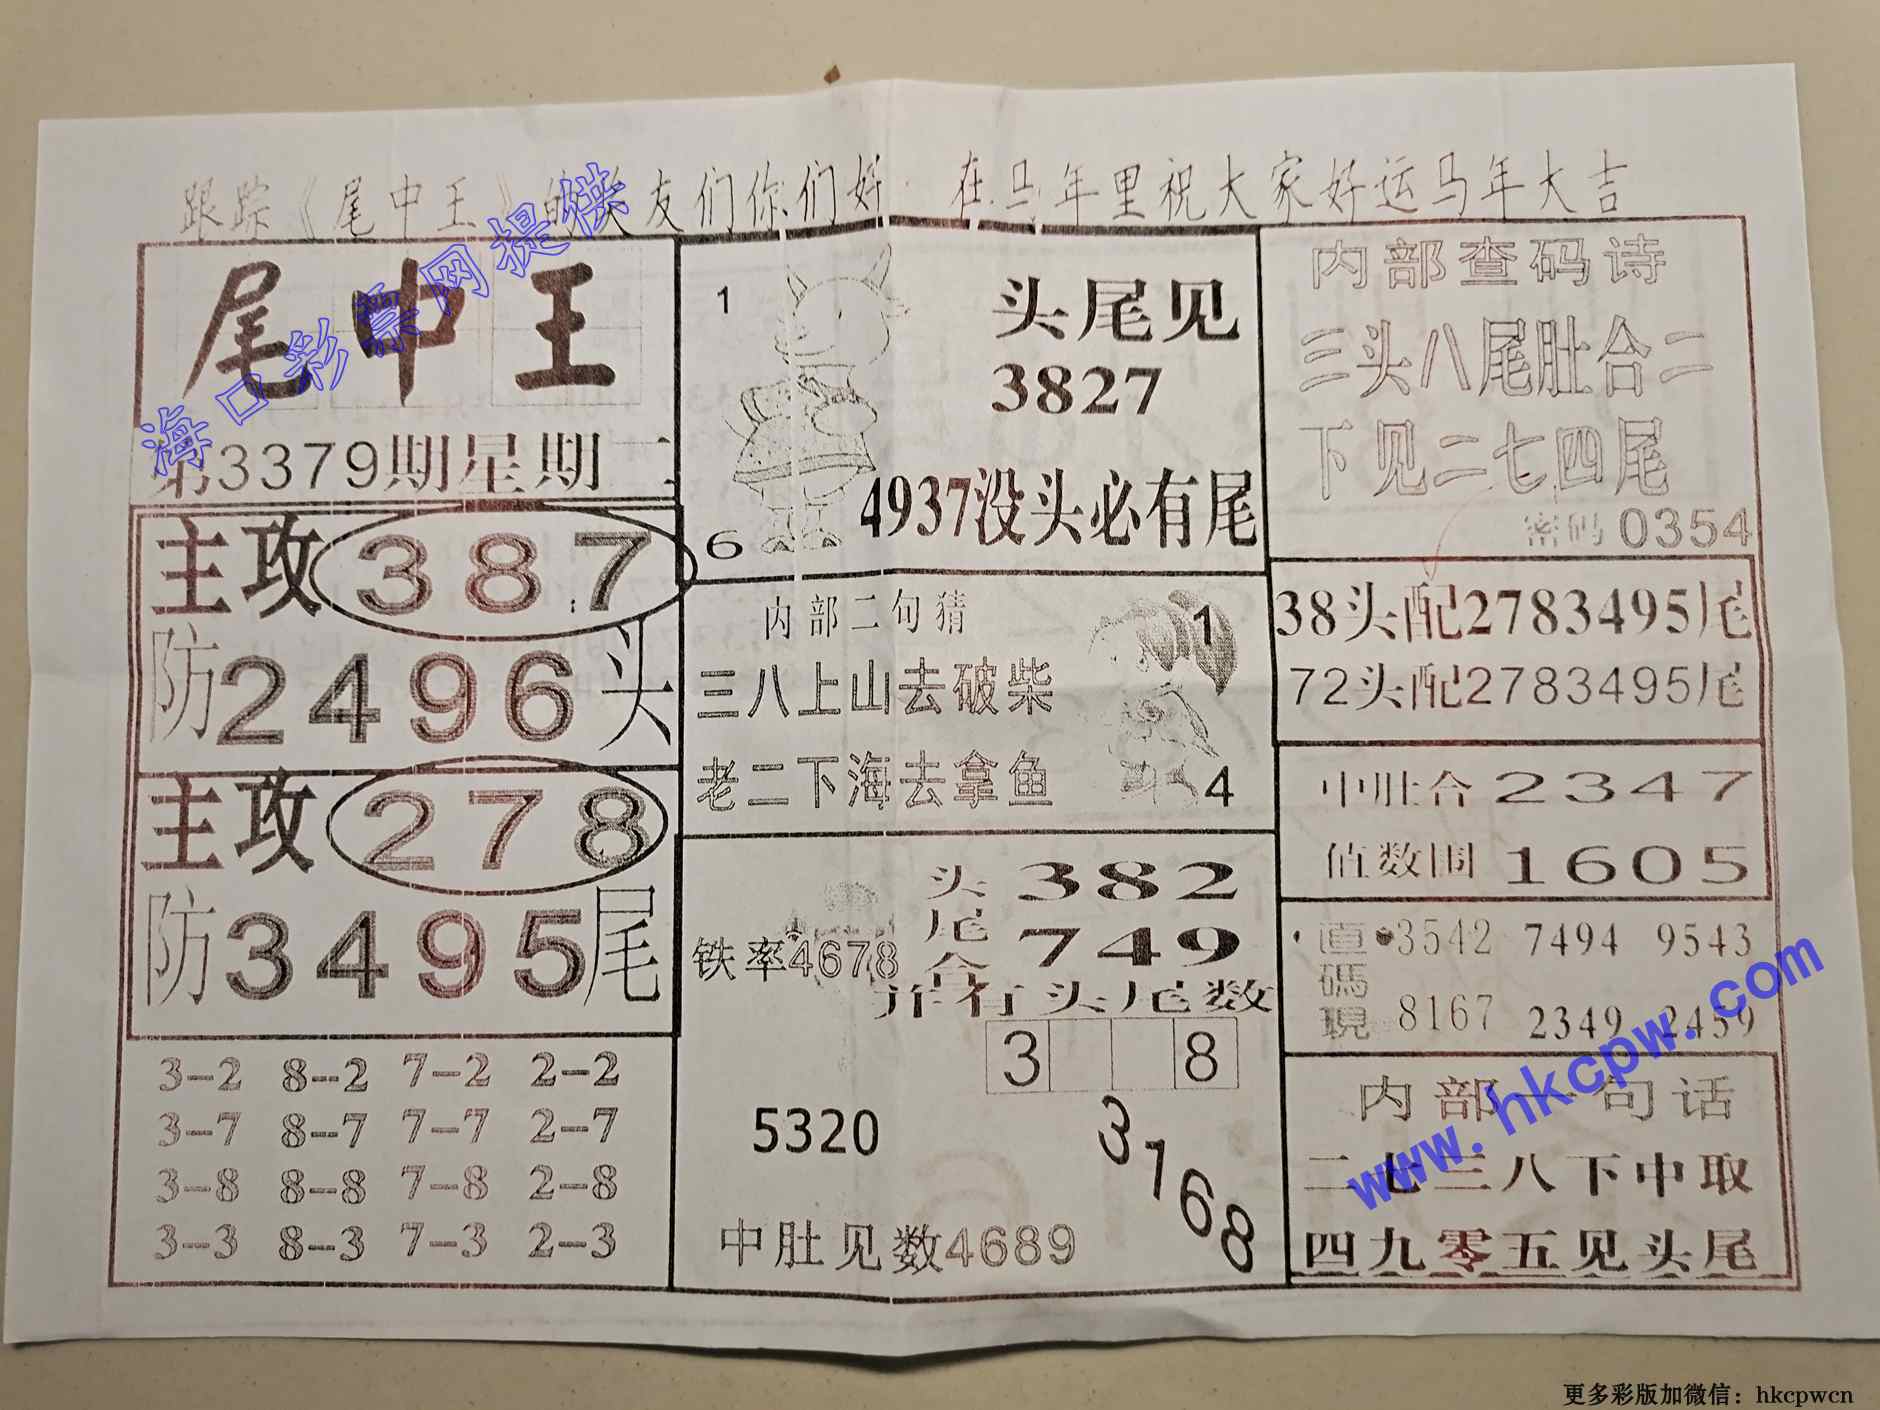 跟踪《尾中王》的友们你们好 在马年里祝大家好运马年大吉
海口彩票网提供
尾中王
第3379期星期二
主攻387
防2496头
主攻278
防3495尾
3--2 8--2 7--2 2--2
3--7 8--7 7--7 2--7
3--8 8--8 7--8 2--8
3--3 8--3 7--3 2--3
1
头尾见
3827
4937没头必有尾
6
内部二句猜
1
三八上山去破柴
老二下海去拿鱼
4
头 382
尾 749
合
铁率4678
并行头尾数
3 8
5320
3168
中肚见数4689
内部查码诗
三头八尾肚合二
下见二七四尾
密码0354
38头配2783495尾
72头配2783495尾
中肚合2347
值数围1605
直碼現
3542 7494 9543
8167 2349 2459
www.hkcpw.com
内部一句话
二七三八下中取
四九零五见头尾
更多彩版加微信：hkcpwcn